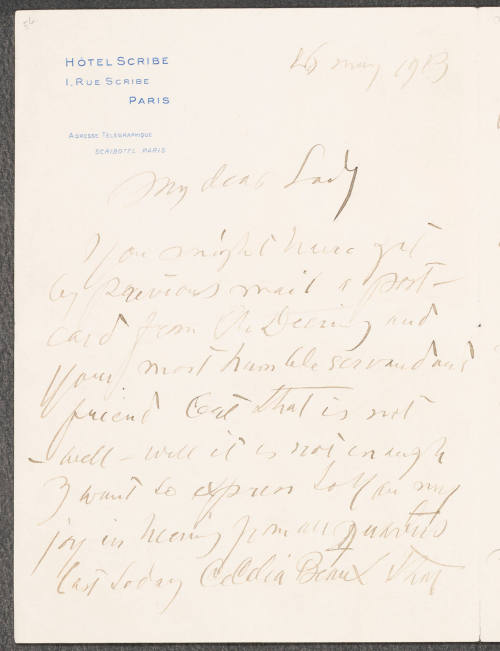 HÔTEL SCRIBE
1, RUE SCRIBE
PARIS
ADRESSE TÉLÉGRAPHIQUE
SCRIBOTEL PARIS
may 1913
My dear Lady
You might have got
by previous mail a post-
card from Ch. Deering and
your most humble servand and
friend that is not
- well - well it is not enough
I want to express to You my
joy in hearing from all quarters
last today Cecilia Beaux that